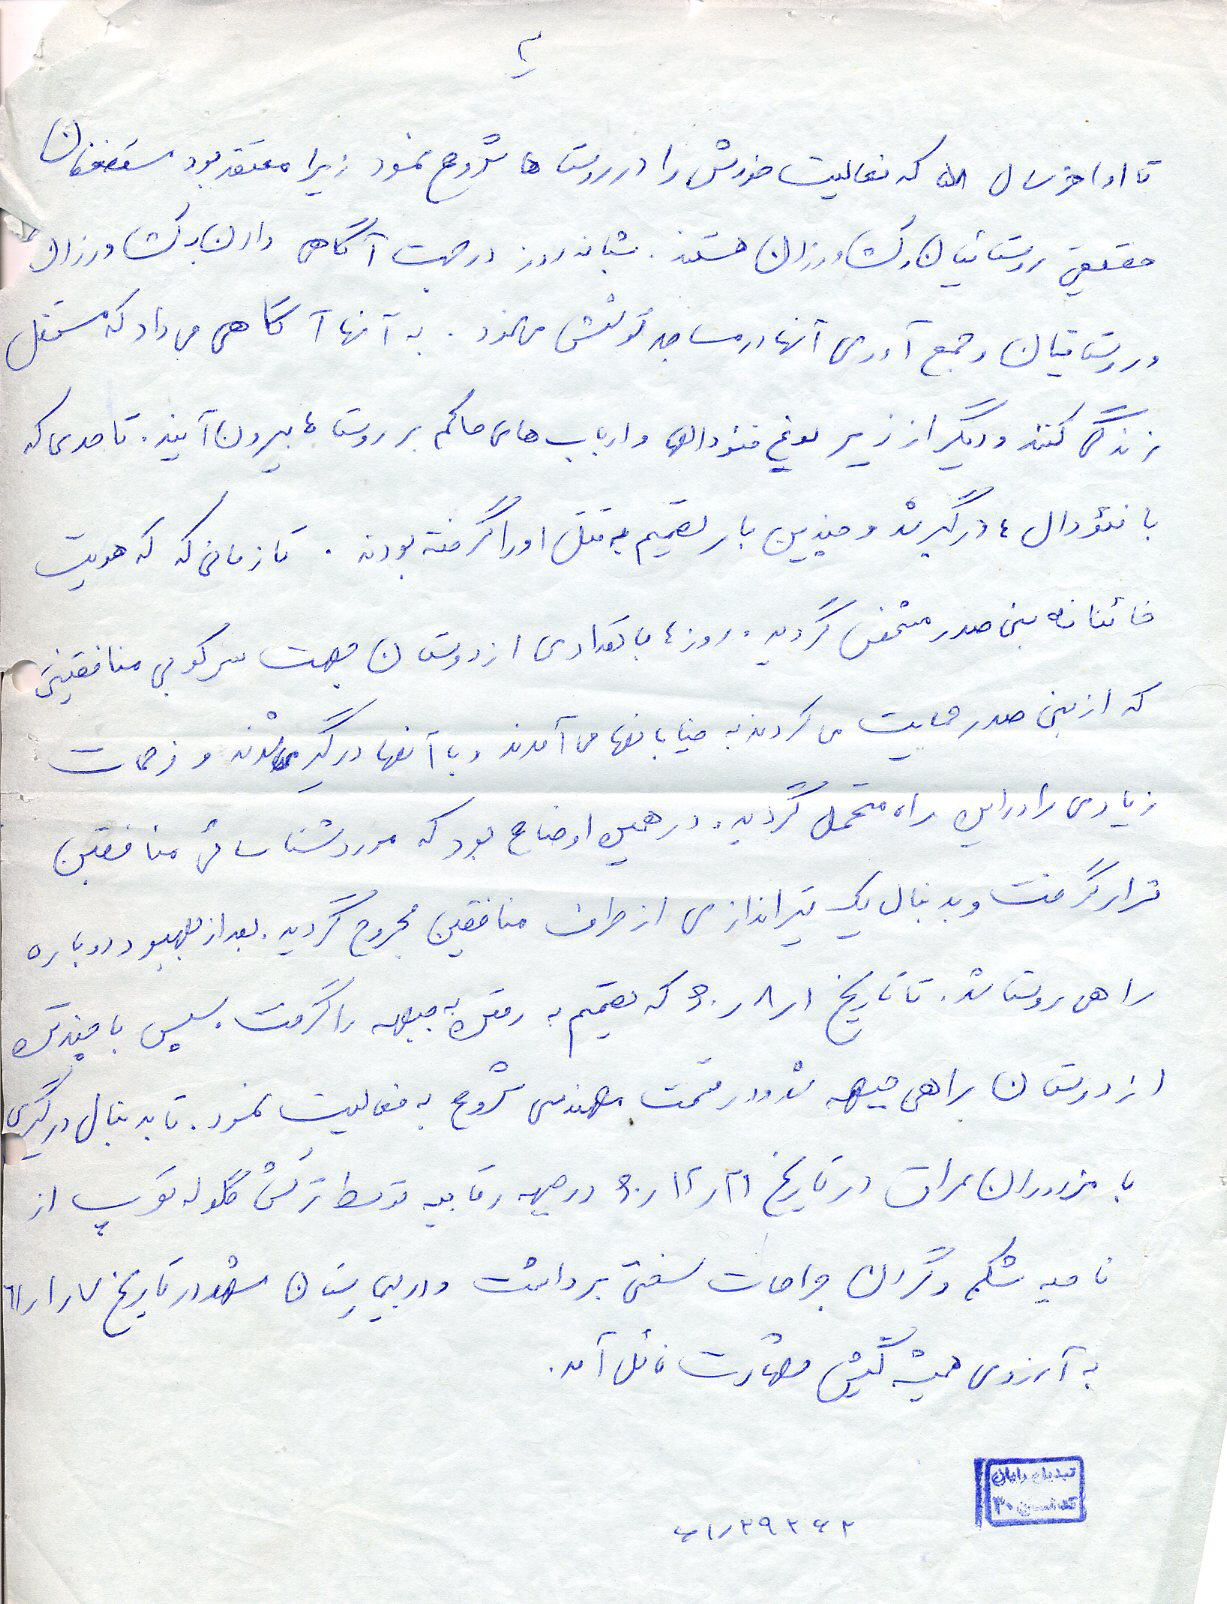 ۳
تا اواخر سال ۵۸ که فعالیت خودش را در روستاها شروع نمود زیرا معتقد بود مستضعفان
حقیقی روستائیان و کشاورزان هستند. شبانه روز در جهت آگاهی دادن به کشاورزان
و روستائیان و جمع آوری آنها در مساجد کوشش می نمود. به آنها آگاهی می داد که مستقل
زندگی کنند و دیگر از زیر یوغ فئودالها و ارباب های حاکم بر روستاها بیرون آیند. تا حدی که
با فئودال ها درگیر شد و چندین بار تصمیم به قتل او را گرفته بودند. تا زمانی که که هویت
خائنانه بنی صدر مشخص گردید. روزها با تعدادی از دوستان جهت سرکوبی منافقین
که از بنی صدر حمایت می کردند به خیابانها می آمدند و با آنها درگیر می شدند و زحمات
زیادی را در این راه متحمل گردید. در همین اوضاع بود که مورد شناسائی منافقین
قرار گرفت و بدنبال یک تیراندازی از طرف منافقین مجروح گردید. بعد از بهبود دوباره
راهی روستا شد. تا تاریخ ۱ر۸ر۶۰ که تصمیم به رفتن به جبهه را گرفت. سپس با چند تن
از دوستان راهی جبهه شد و در قسمت مهندسی شروع به فعالیت نمود. تا بدنبال درگیری
با مزدوران عراق در تاریخ ۲۱ر۱۲ر۶۰ در جبهه رقابیه توسط ترکش گلوله توپ از
ناحیه شکم و گردن جراحات سختی برداشت و در بیمارستان مشهد در تاریخ ۷ر۱ر۶۱
به آرزوی همیشگیش شهادت نائل آمد.
تبدیل رایان